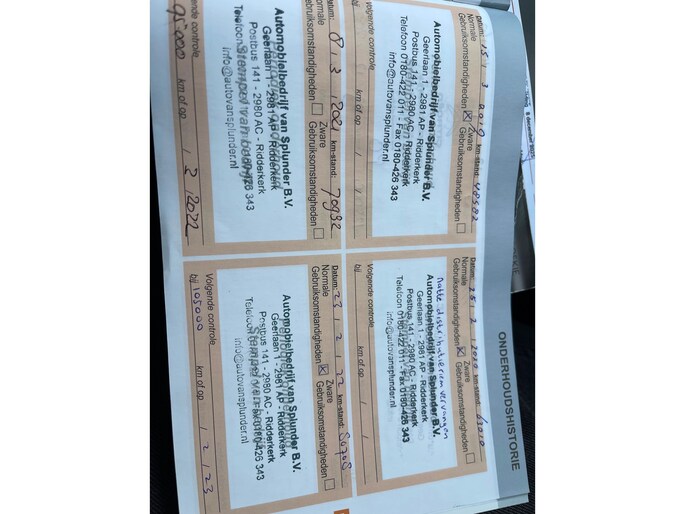 ONDERHOUDSHISTORIE
Datum: 15 / 3 / 2019 km-stand: 48582
Normale Gebruiksomstandigheden ☒ Zware Gebruiksomstandigheden ☐
Automobielbedrijf van Splunder B.V.
Geerlaan 1 - 2981 AP - Ridderkerk
Postbus 141 - 2980 AC - Ridderkerk
Telefoon 0180-422 011 - Fax 0180-426 343
info@autovansplunder.nl
Volgende controle
bij km of op / /
Datum: 25 / 2 / 2020 km-stand: 63010
Normale Gebruiksomstandigheden ☒ Zware Gebruiksomstandigheden ☐
natte distributieriem vervangen
Automobielbedrijf van Splunder B.V.
Geerlaan 1 - 2981 AP - Ridderkerk
Postbus 141 - 2980 AC - Ridderkerk
Telefoon 0180-422 011 - Fax 0180-426 343
info@autovansplunder.nl
Volgende controle
bij km of op / /
Datum: 8 / 3 / 2021 km-stand: 70932
Normale Gebruiksomstandigheden ☒ Zware Gebruiksomstandigheden ☐
Automobielbedrijf van Splunder B.V.
Geerlaan 1 - 2981 AP - Ridderkerk
Postbus 141 - 2980 AC - Ridderkerk
Telefoon 426 343
info@autovansplunder.nl
Volgende controle
95000 km of op / 3 / 2022
Datum: 23 / 2 / 22 km-stand: 86708
Normale Gebruiksomstandigheden ☒ Zware Gebruiksomstandigheden ☐
Automobielbedrijf van Splunder B.V.
Geerlaan 1 - 2981 AP - Ridderkerk
Postbus 141 - 2980 AC - Ridderkerk
Telefoon 0180-426 343
info@autovansplunder.nl
Volgende controle
bij 105000 km of op / 2 / 23